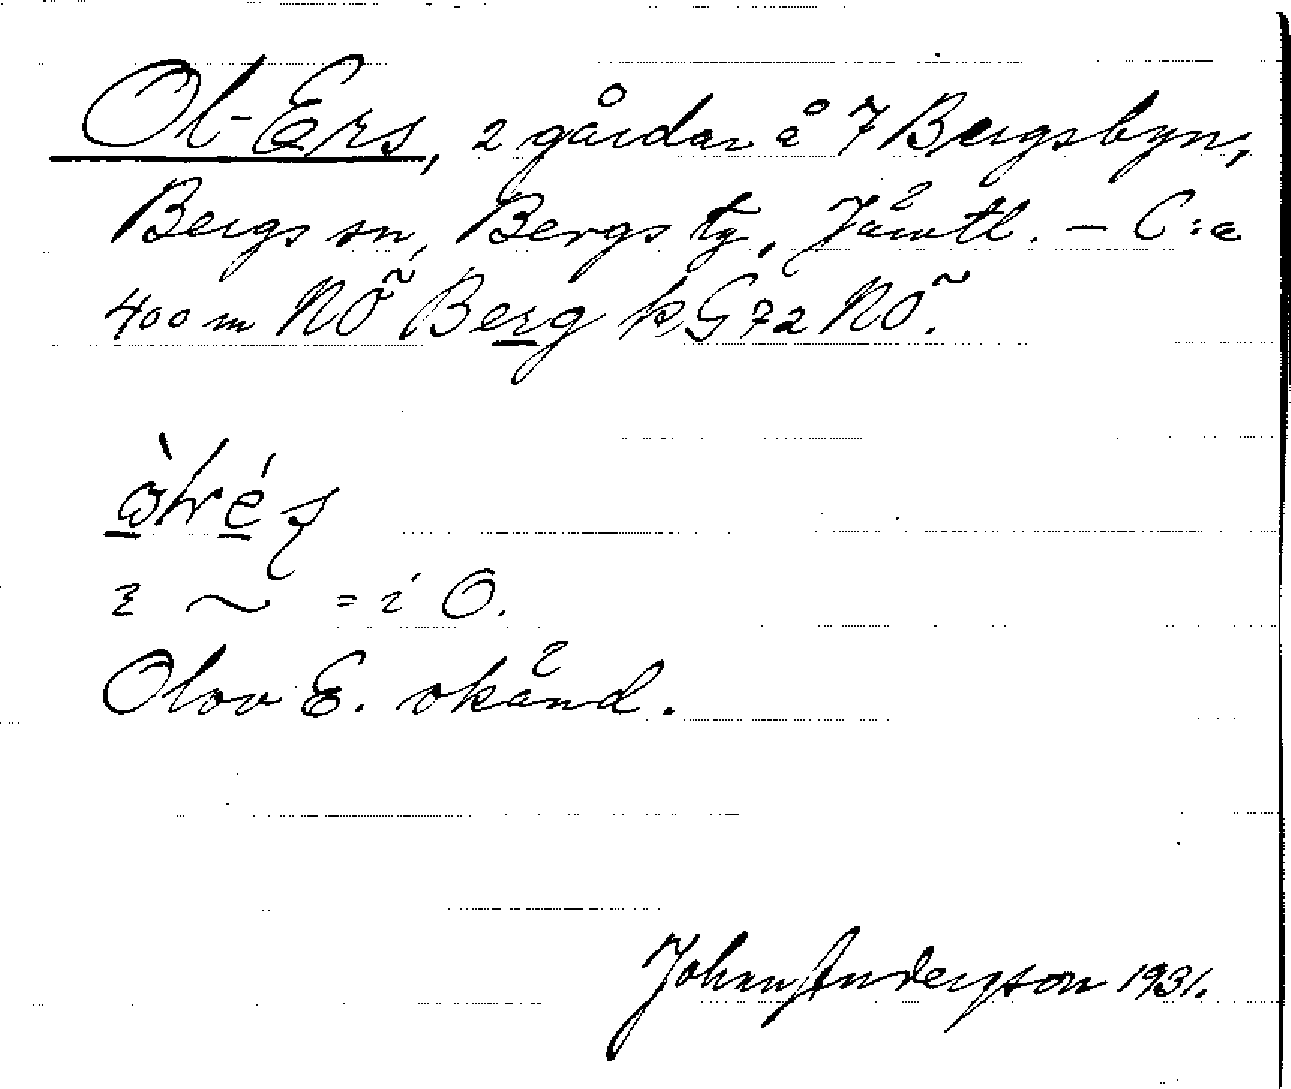 Ol-Ers, 2 gårdar å 7 Bergsbyn,
Bergs sn, Bergs tg, Jämtl. – C:a
400 m NÖ Berg k G 72 NÖ.
i ~ = i O.
Olov E. okänd.
Johan Anderson 1931.